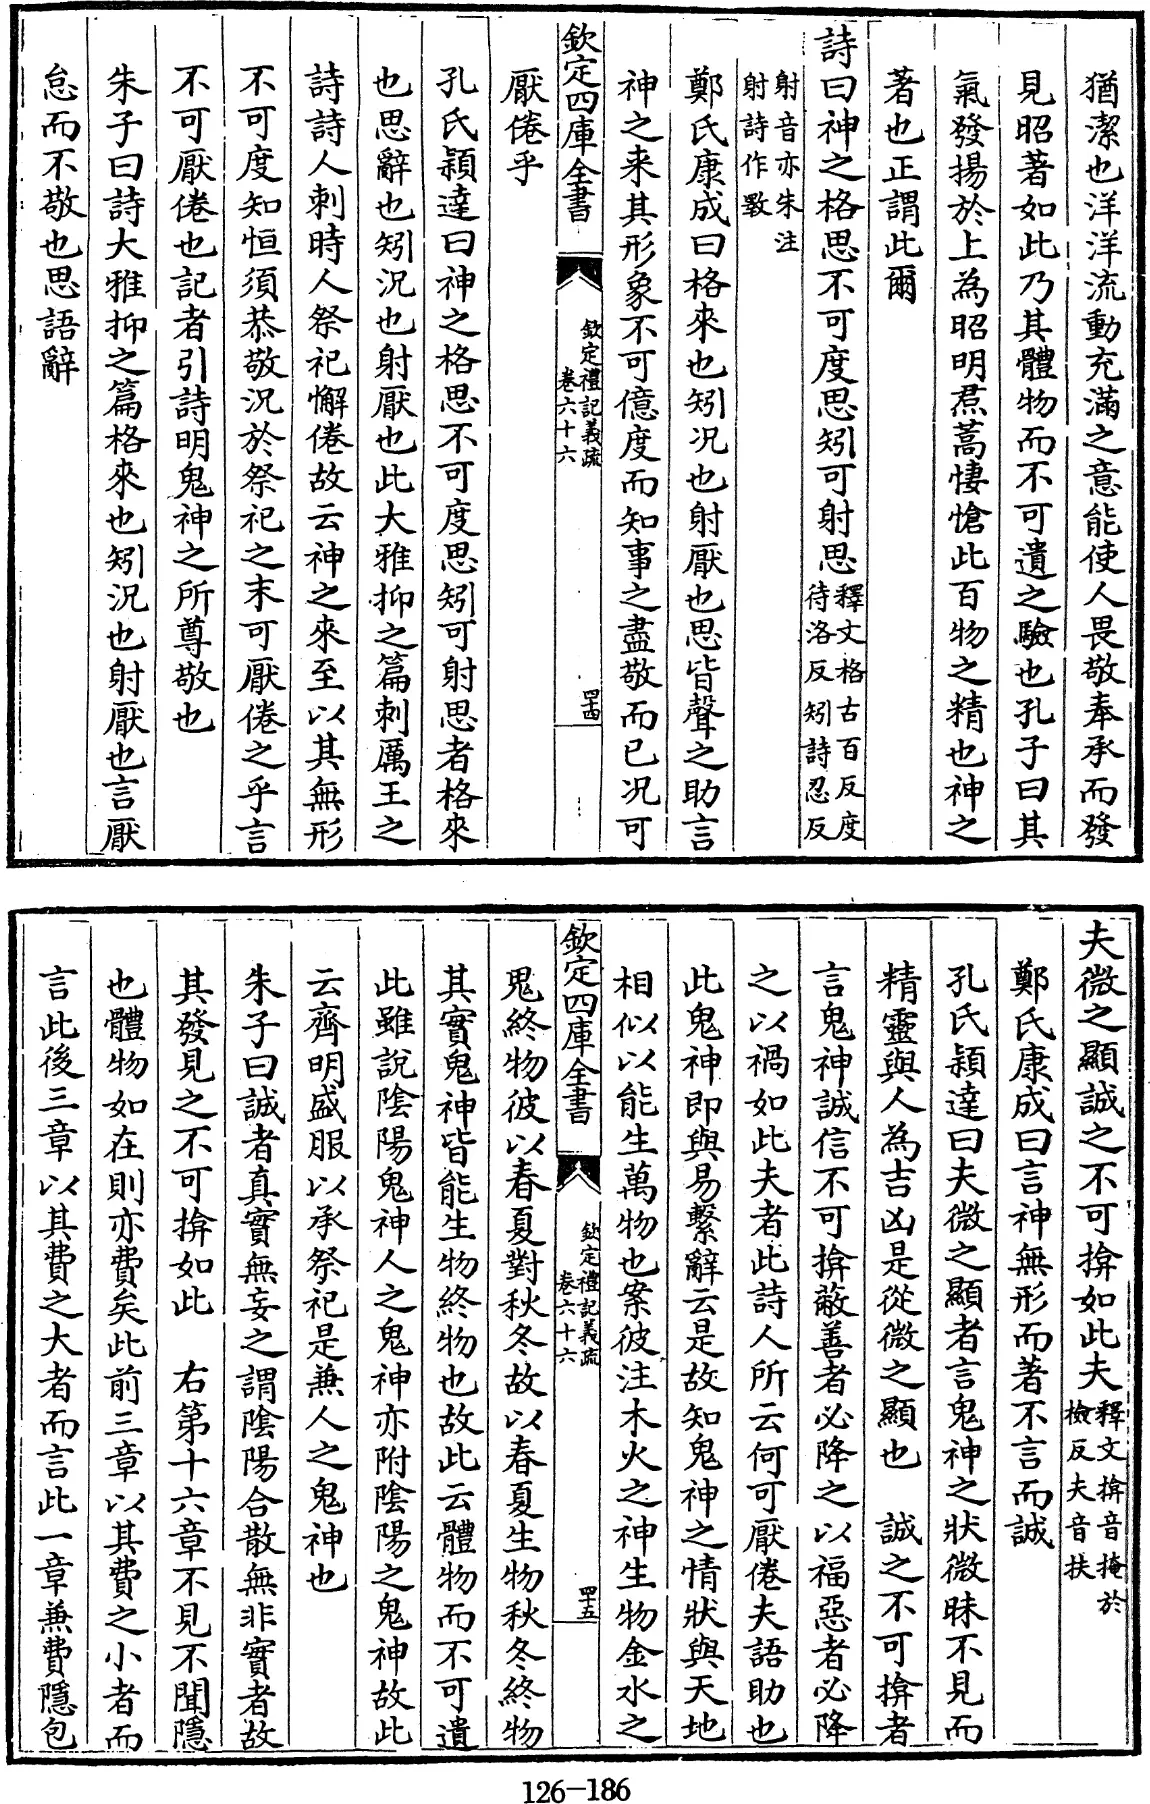 猶潔也洋洋流動充滿之意能使人畏敬奉承而發
見昭著如此乃其體物而不可遺之驗也孔子曰其
氣發揚於上為昭明焄蒿悽愴此百物之精也神之
著也正謂此爾
詩曰神之格思不可度思矧可射思釋文格古百反度
待洛反矧詩忍反
射音亦朱注
射詩作斁
鄭氏康成曰格來也矧况也射厭也思皆聲之助言
神之来其形象不可億度而知事之盡敬而已况可
厭倦乎
欽定四庫全書
欽定禮記義疏
卷六十六
四十四
孔氏穎達曰神之格思不可度思矧可射思者格來
也思辭也矧況也射厭也此大雅抑之篇刺厲王之
詩詩人刺時人祭祀懈倦故云神之來至以其無形
不可度知恒須恭敬況於祭祀之末可厭倦之乎言
不可厭倦也記者引詩明鬼神之所尊敬也
朱子曰詩大雅抑之篇格來也矧況也射厭也言厭
怠而不敬也思語辭
夫微之顯誠之不可揜如此夫釋文揜音掩於
檢反夫音扶
鄭氏康成曰言神無形而著不言而誠
孔氏穎達曰夫微之顯者言鬼神之狀微昧不見而
精靈與人為吉凶是從微之顯也　誠之不可揜者
言鬼神誠信不可揜蔽善者必降之以福惡者必降
之以禍如此夫者此詩人所云何可厭倦夫語助也
此鬼神即與易繫辭云是故知鬼神之情狀與天地
相似以能生萬物也案彼注木火之神生物金水之
欽定四庫全書
欽定禮記義疏
卷六十六
四十五
鬼終物彼以春夏對秋冬故以春夏生物秋冬終物
其實鬼神皆能生物終物也故此云體物而不可遺
此雖說陰陽鬼神人之鬼神亦附陰陽之鬼神故此
云齊明盛服以承祭祀是兼人之鬼神也
朱子曰誠者真實無妄之謂陰陽合散無非實者故
其發見之不可揜如此　右第十六章不見不聞隱
也體物如在則亦費矣此前三章以其費之小者而
言此後三章以其費之大者而言此一章兼費隱包
126-186